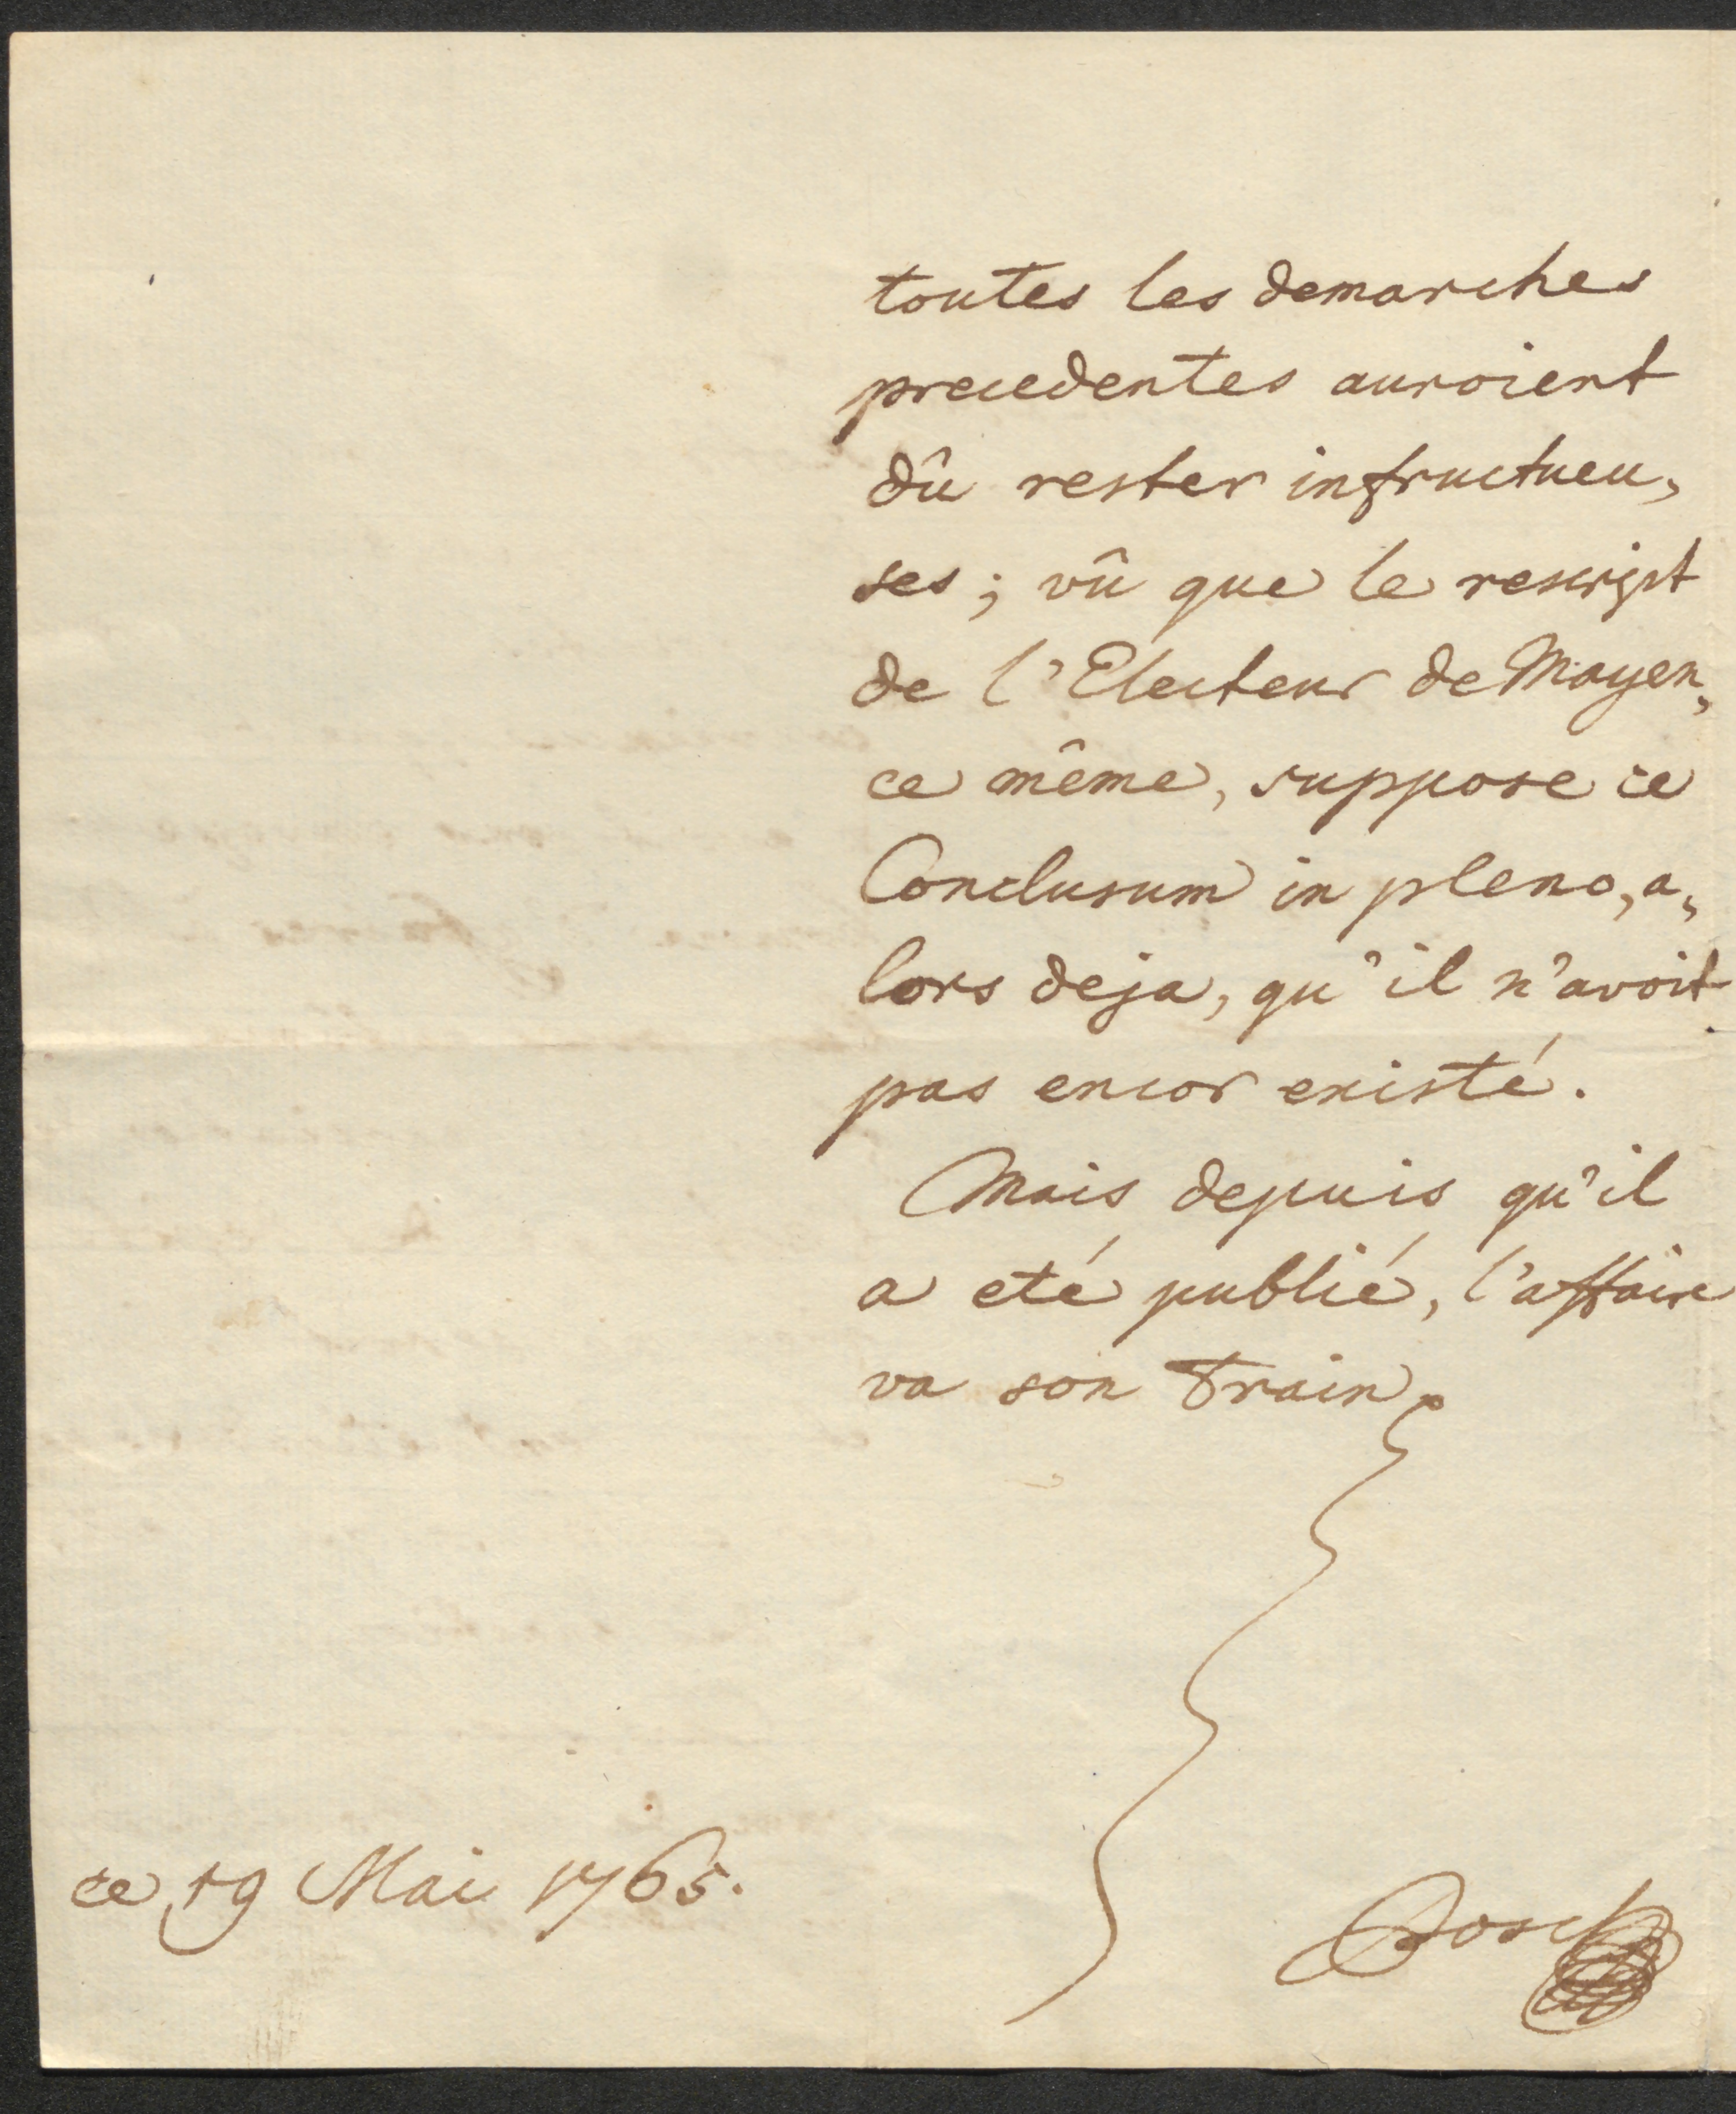 toutes les demarches
precedentes auroient
dû rester infructueu„
ses; vû que le rescript
de l'Electeur de Mayen„
ce même, suppose ce
Conclusum in pleno, a„
lors deja, qu'il n'avoit
pas encor existé.
Mais depuis qu'il
a eté publié, l'affaire
va son Train.
ce 19 Mai 1765.
Bosch